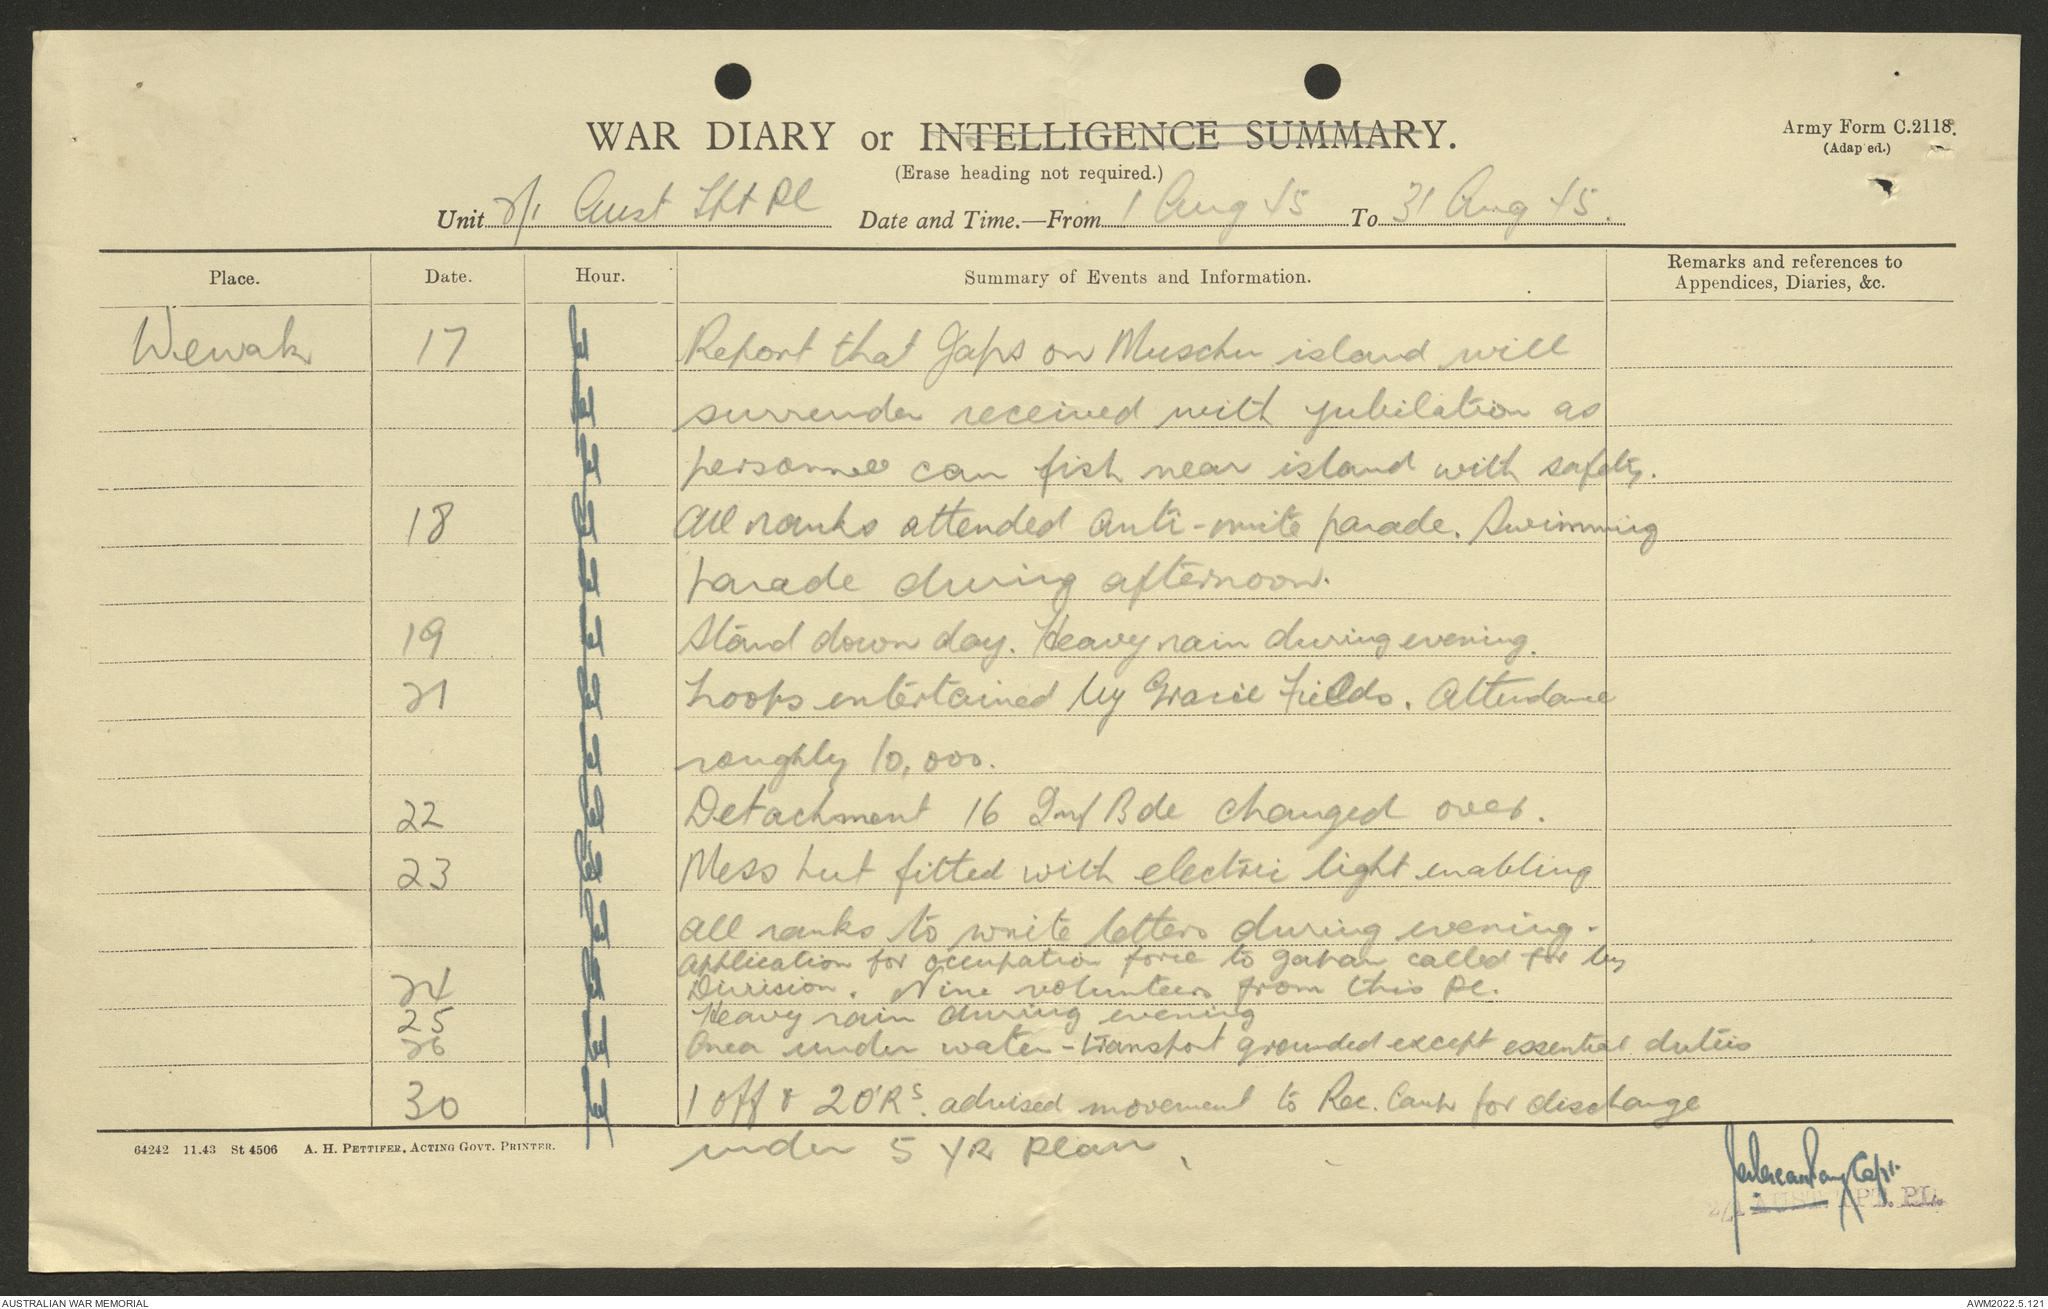 WAR DIARY or INTELLIGENCE SUMMARY.
(Erase heading not required.)
Army Form C.2118.
(Adapted.)
Unit 2/1 Aust Tpt Pl Date and Time.—From 1 Aug 45 To 31 Aug 45.
Place. Date. Hour. Summary of Events and Information. Remarks and references to Appendices, Diaries, &c.
Wewak 17 Report that Japs on Muschu island will
surrender received with jubilation as
personnel can fish near island with safety.
18 All ranks attended anti-mite parade. Swimming
parade during afternoon.
19 Stand down day. Heavy rain during evening.
21 Troops entertained by Gracie Fields. Attendance
roughly 10,000.
22 Detachment 16 Inf Bde changed over.
23 Mess hut fitted with electric light enabling
all ranks to write letters during evening.
Application for occupation force to Japan called for by
24 Division. Nine volunteers from this Pl.
25 Heavy rain during evening
26 Area under water - transport grounded except essential duties
30 1 Off & 2 O'Rs. advised movement to Rec. Camp for discharge
under 5 YR Plan.
64242 11.43 St 4506 A. H. PETTIFER, ACTING GOVT. PRINTER.
Capt.
2/1 AUST. TPT. PL.
AUSTRALIAN WAR MEMORIAL
AWM2022.5.121